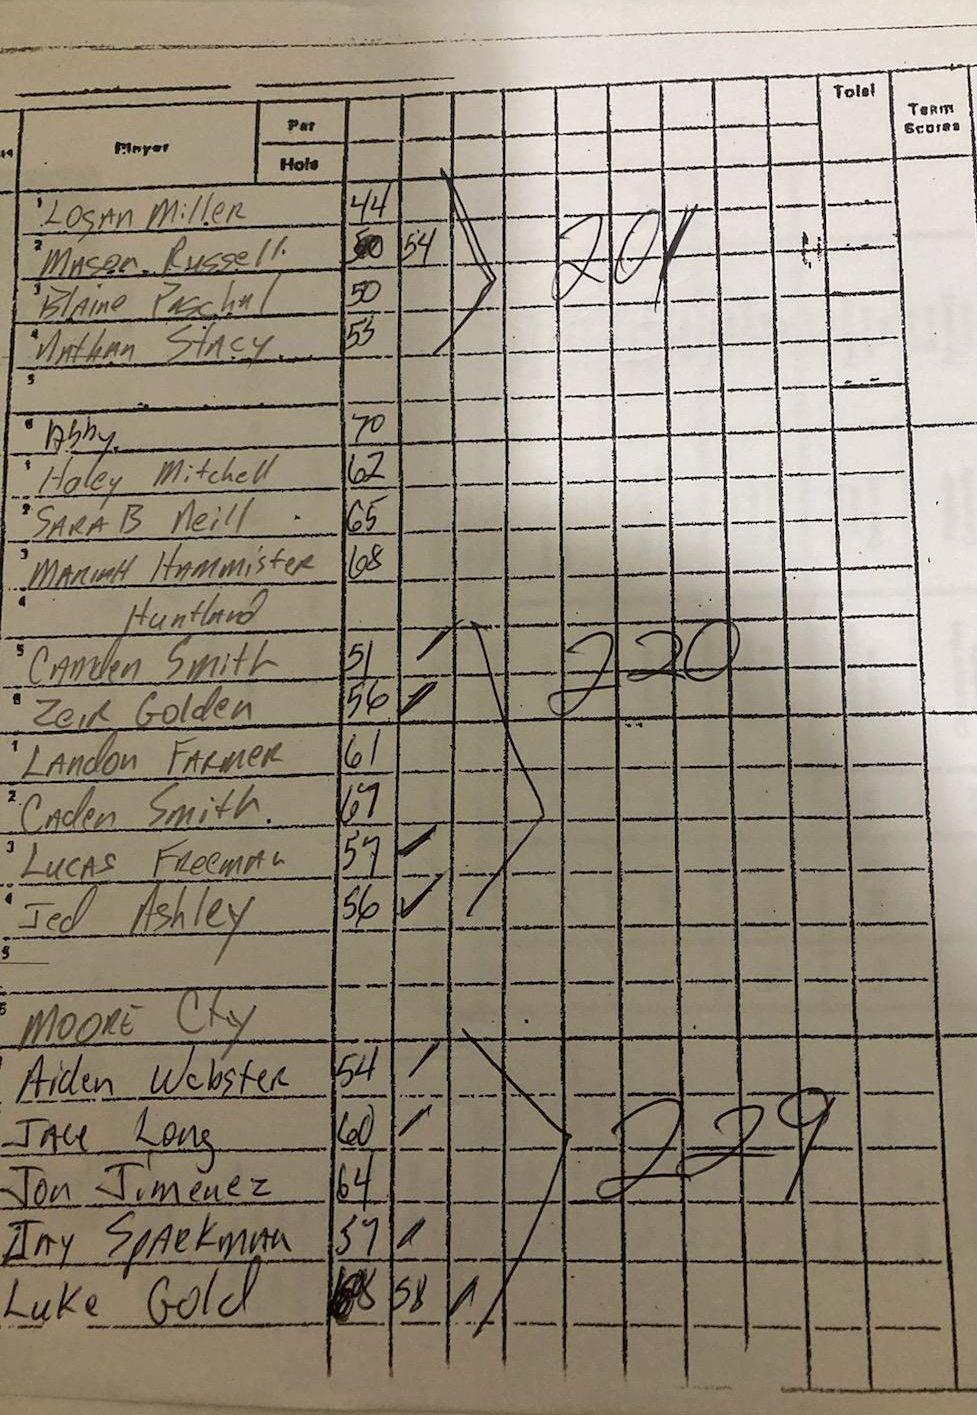 Par Total Team Scores
Player
Hole
1 Logan Miller 44
2 Mason Russell 54 201
3 Blaine Paschal 50
4 Nathan Stacy 53
5
6 Abby 70
1 Haley Mitchell 62
2 SARA B Neill 65
3 MARIAH HAMMISTER 68
4 Huntland
5 CAMden Smith 51 220
6 Zeir Golden 56
1 LANdon FARMER 61
2 CAden Smith. 67
3 LUCAS FREEMAN 57
4 Jed Ashley 56
5
6 MOORE Cty
Aiden Webster 54
JAKE Long 60 229
Jon Jimenez 64
JAY SPARKMAN 57
Luke Gold 58